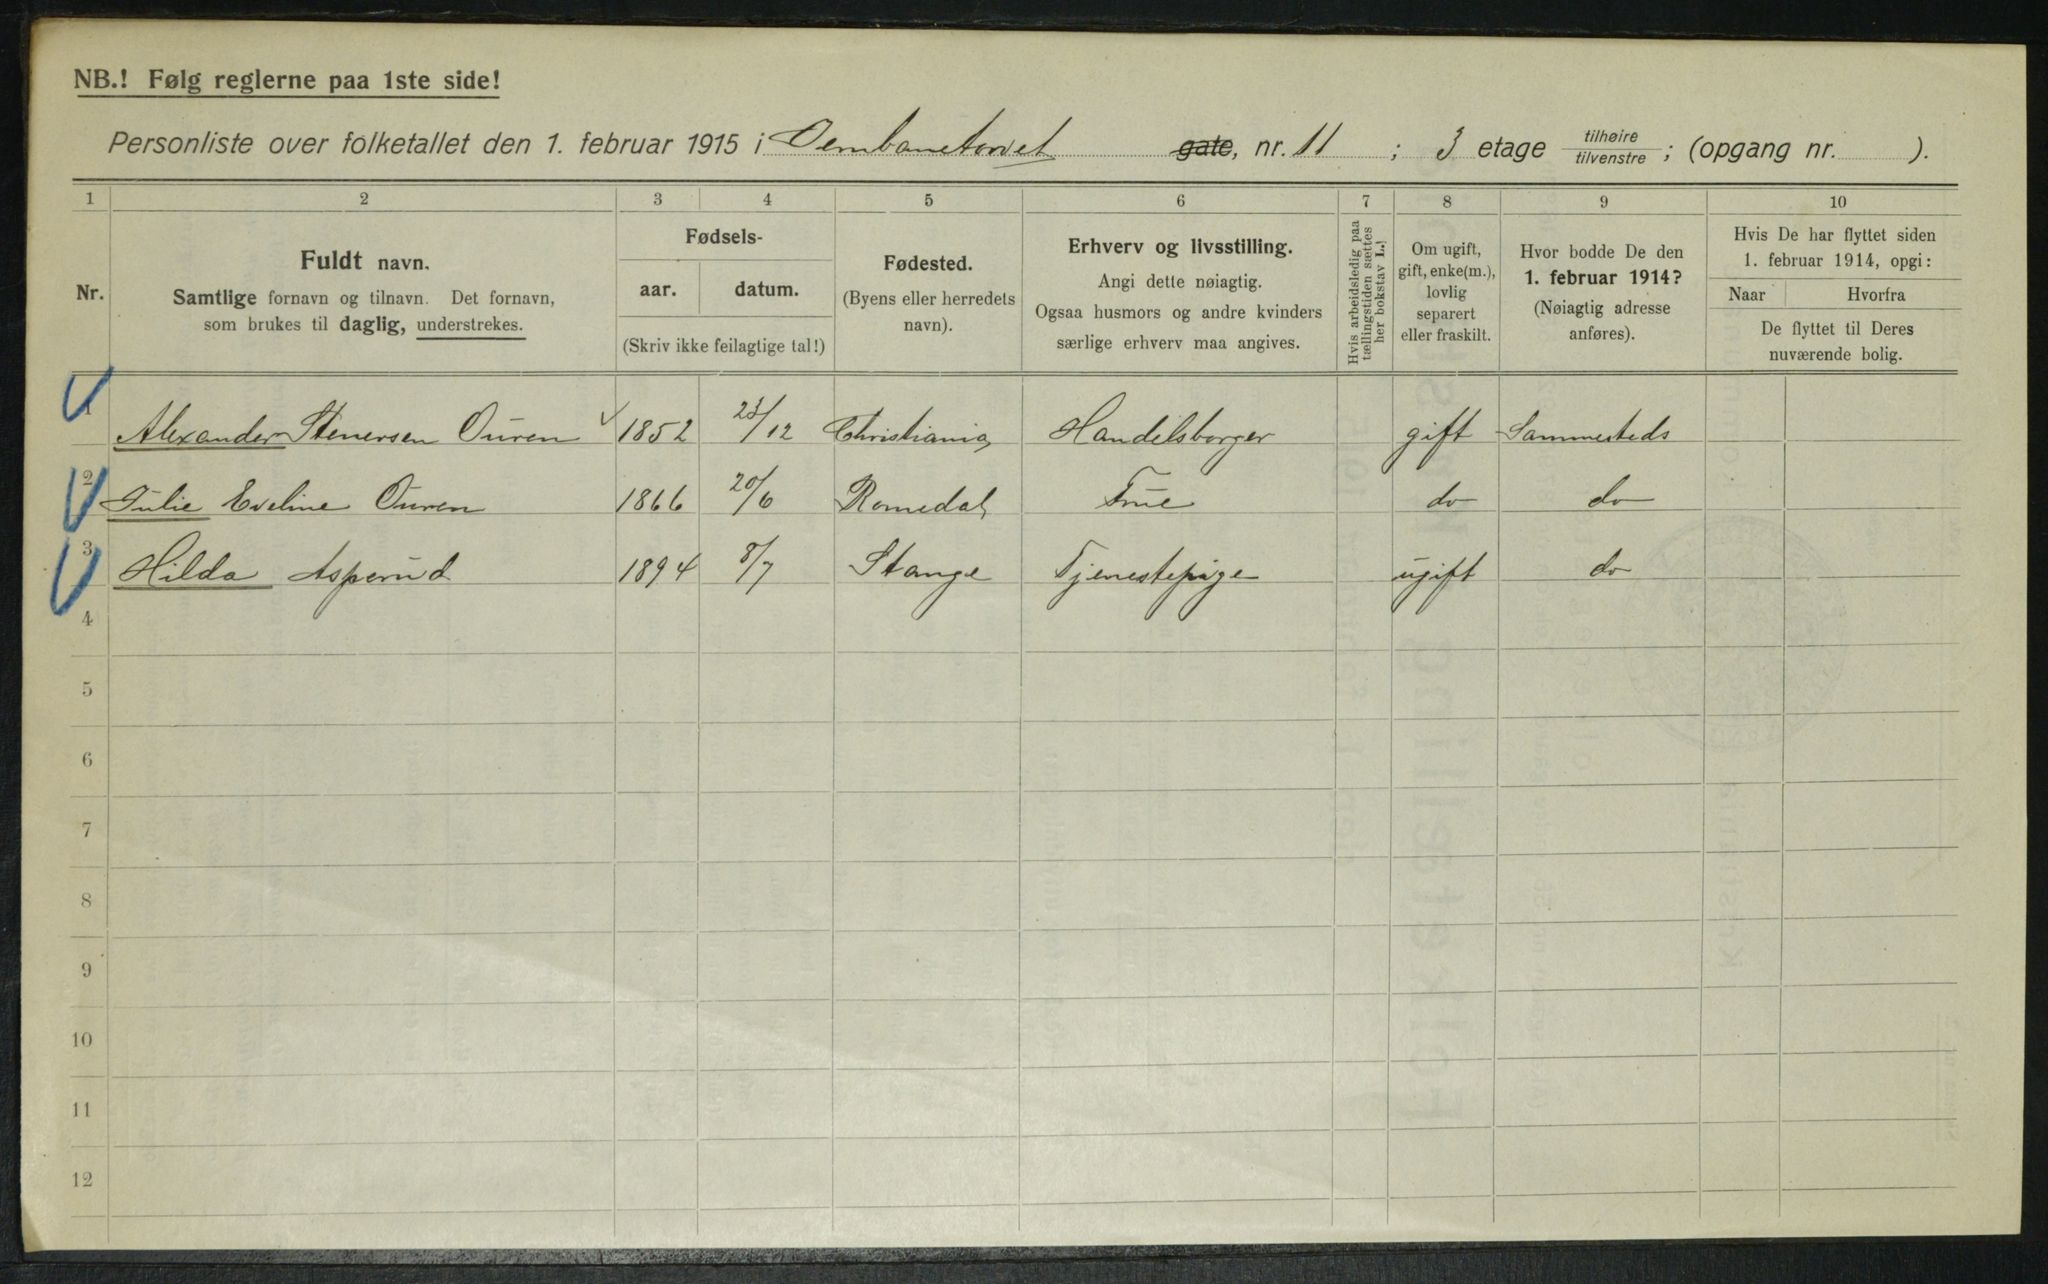 NB.! Følg reglerne paa 1ste side!
Personliste over folketallet den 1. februar 1915 i Jernbanetorvet gate, nr. 11 ; 3 etage tilhøire tilvenstre ; (opgang nr. ).
1 2 3 4 5 6 7 8 9 10
Nr.
Fuldt navn.
Samtlige fornavn og tilnavn. Det fornavn,
som brukes til daglig, understrekes.
Fødsels-
aar. datum.
(Skriv ikke feilagtige tal!)
Fødested.
(Byens eller herredets
navn).
Erhverv og livsstilling.
Angi dette nøiagtig.
Ogsaa husmors og andre kvinders
særlige erhverv maa angives.
Hvis arbeidsledig paa
tællingstiden sættes
her bokstav L.!
Om ugift,
gift, enke(m.),
lovlig
separert
eller fraskilt.
Hvor bodde De den
1. februar 1914?
(Nøiagtig adresse
anføres).
Hvis De har flyttet siden
1. februar 1914, opgi:
Naar Hvorfra
De flyttet til Deres
nuværende bolig.
1 Alexander Stenersen Ouren 1852 23/12 Christiania Handelsborger gift Sammesteds
2 Julie Eveline Ouren 1866 20/6 Romedal Frue do do
3 Hilda Asperud 1894 8/7 Stange Tjenestepige ugift do
4
5
6
7
8
9
10
11
12